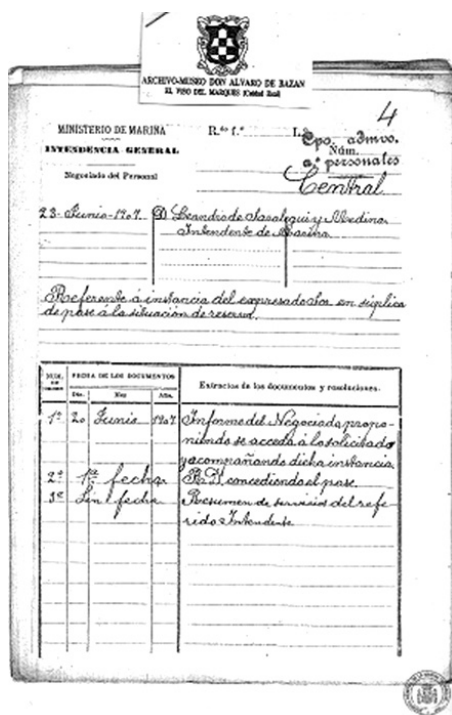 ARCHIVO-MUSEO DON ALVARO DE BAZAN
EL VISO DEL MARQUES (Ciudad Real)
4
MINISTERIO DE MARINA
INTENDENCIA GENERAL
Negociado del Personal
R.do 1.º
L.
Cpo. admvo.
Núm.
a.s personales
Central
23-Junio-1907
D Leandro de Saralegui y Medina
Intendente de Marina
Referente á instancia del expresado Sor en súplica
de pase á la situación de reserva.
NÚM. DE ORDEN
FECHA DE LOS DOCUMENTOS
Día. Mes Año.
Extractos de los documentos y resoluciones.
1º 20 Junio 1907 Informe del Negociado propo-
niendo se acceda á lo solicitado
y acompañando dicha instancia
2º 1ª fecha R.D. concediendo el pase.
3º Sin fecha Resumen de servicios del refe-
rido Intendente